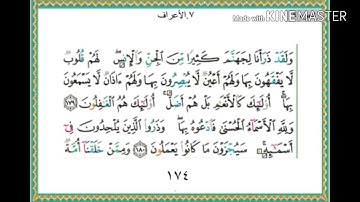 ٧.الأعراف
Made with KINEMASTER
وَلَقَدْ ذَرَأْنَا لِجَهَنَّمَ كَثِيرًا مِّنَ الْجِنِّ وَالْإِنسِ ۖ لَهُمْ قُلُوبٌ
لَّا يَفْقَهُونَ بِهَا وَلَهُمْ أَعْيُنٌ لَّا يُبْصِرُونَ بِهَا وَلَهُمْ ءَاذَانٌ لَّا يَسْمَعُونَ
بِهَا ۚ أُوْلَٰٓئِكَ كَالْأَنْعَٰمِ بَلْ هُمْ أَضَلُّ ۚ أُوْلَٰٓئِكَ هُمُ الْغَٰفِلُونَ ١٧٩
وَلِلَّهِ الْأَسْمَآءُ الْحُسْنَىٰ فَادْعُوهُ بِهَا ۖ وَذَرُوا الَّذِينَ يُلْحِدُونَ فِىٓ
أَسْمَٰٓئِهِۦ ۚ سَيُجْزَوْنَ مَا كَانُوا يَعْمَلُونَ ١٨٠ وَمِمَّنْ خَلَقْنَآ أُمَّةٌ
١٧٤